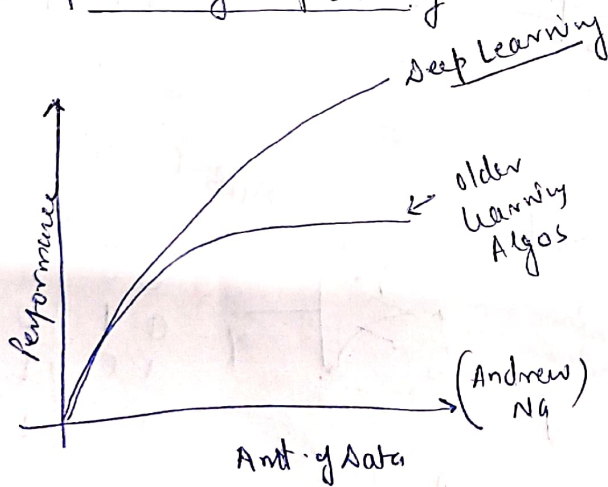 Deep Learning
older
learning
Algos
Performance
(Andrew
NG)
Amt. of Data